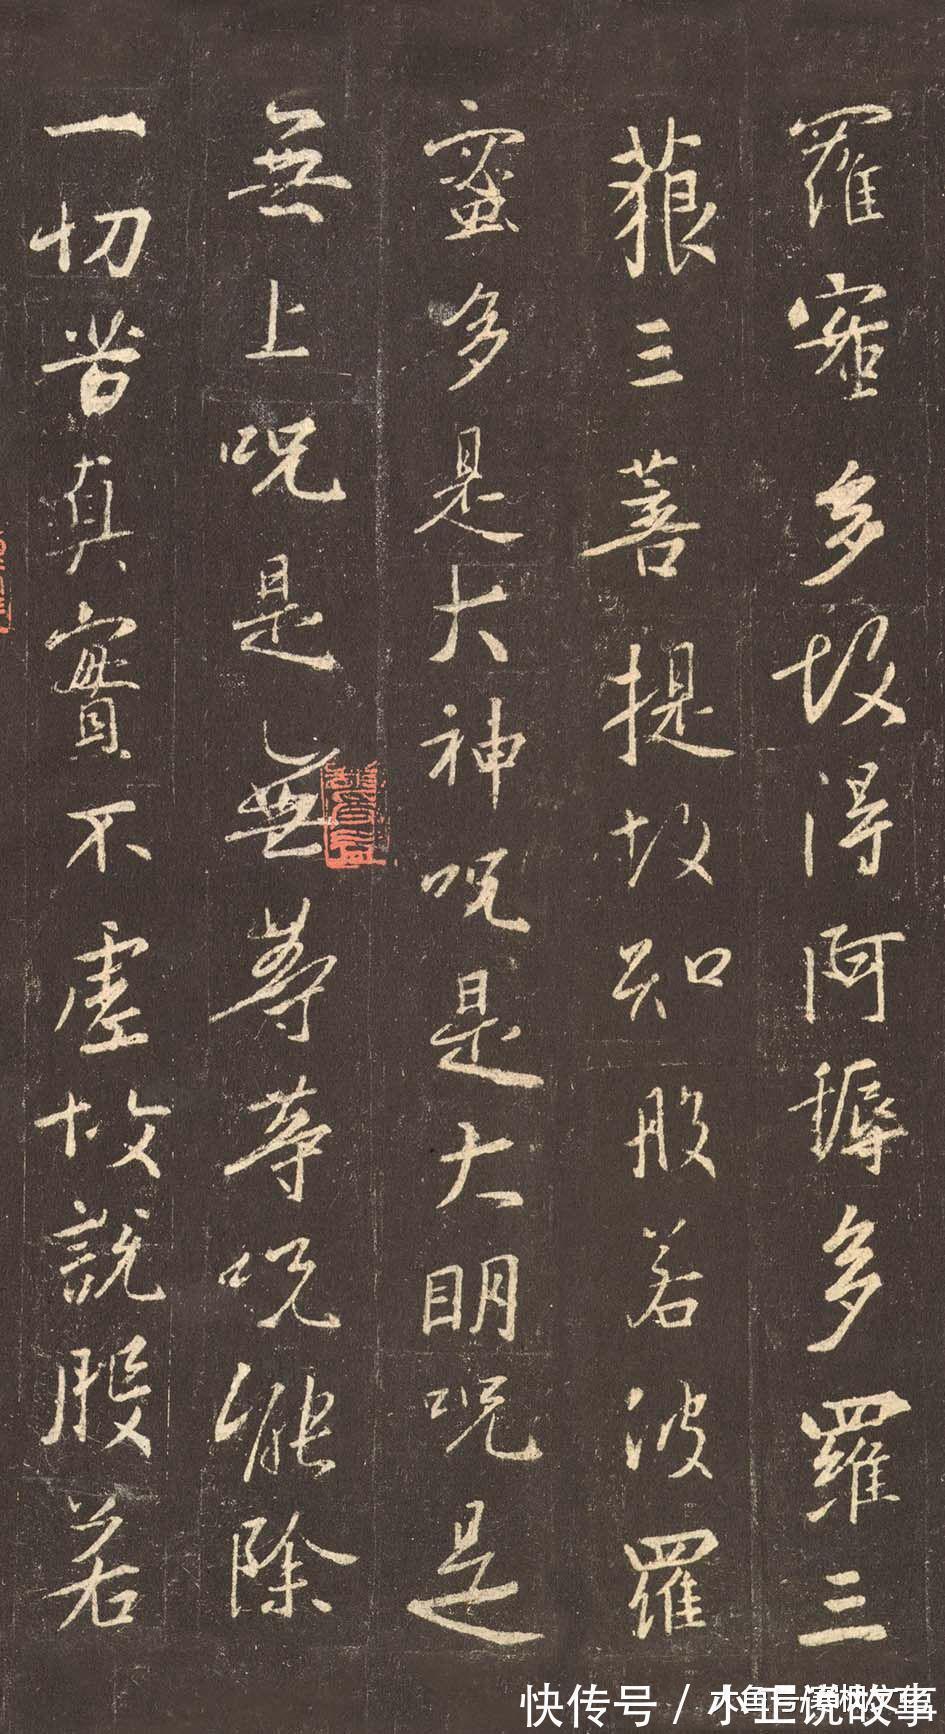 羅蜜多故得阿耨多羅三
藐三菩提故知般若波羅
蜜多是大神呪是大明呪是
無上呪是無等等呪能除
一切苦真實不虛故說般若
快传号/小正说故事